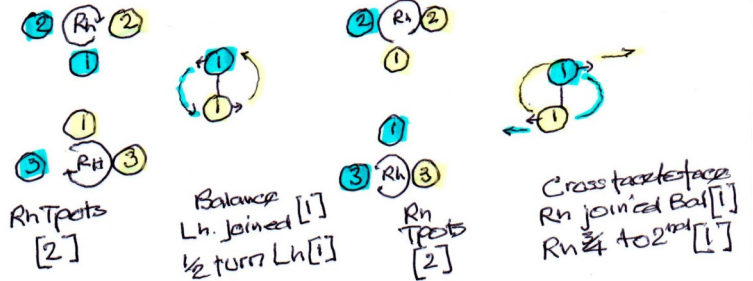 2 Rh 2
1
1
3 RH 3
Rh Tpots
[2]
1
1
Balance
Lh. joined [1]
1/2 turn Lh [1]
2 Rh 2
1
1
3 Rh 3
Rh
Tpots
[2]
1
1
Cross facetoface
Rh joined Bal [1]
Rh 3/4 to 2nd [1]